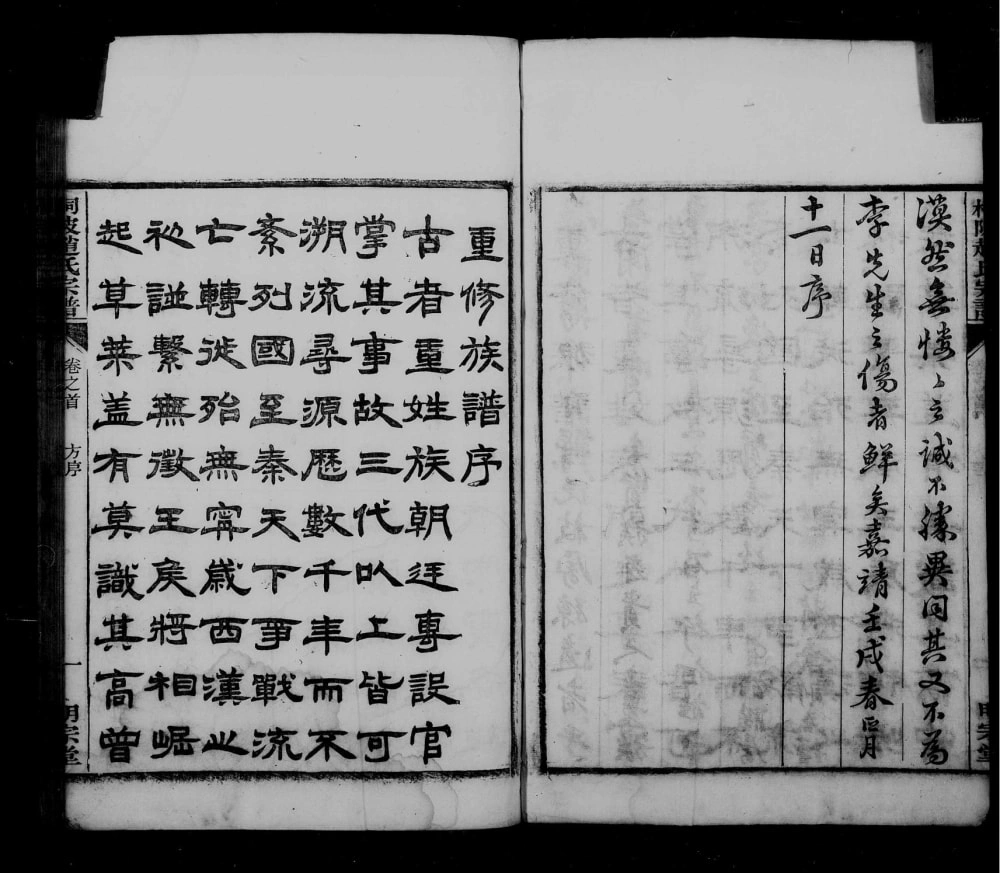 漠然無悽〻之誠不勝異同其又不為
李先生之傷者鮮矣嘉靖壬戌春正月
十一日序
重修族譜序
古者重姓族朝廷專設官
掌其事故三代以上皆可
溯流尋源歷數千年而不
紊列國至秦天下爭戰流
亡轉徙殆無寧歲西漢之
初諡繫無徵王矦將相崛
起草莱盖有莫識其高曾
桐陂趙氏宗譜
卷之首
方序
一
明宗堂